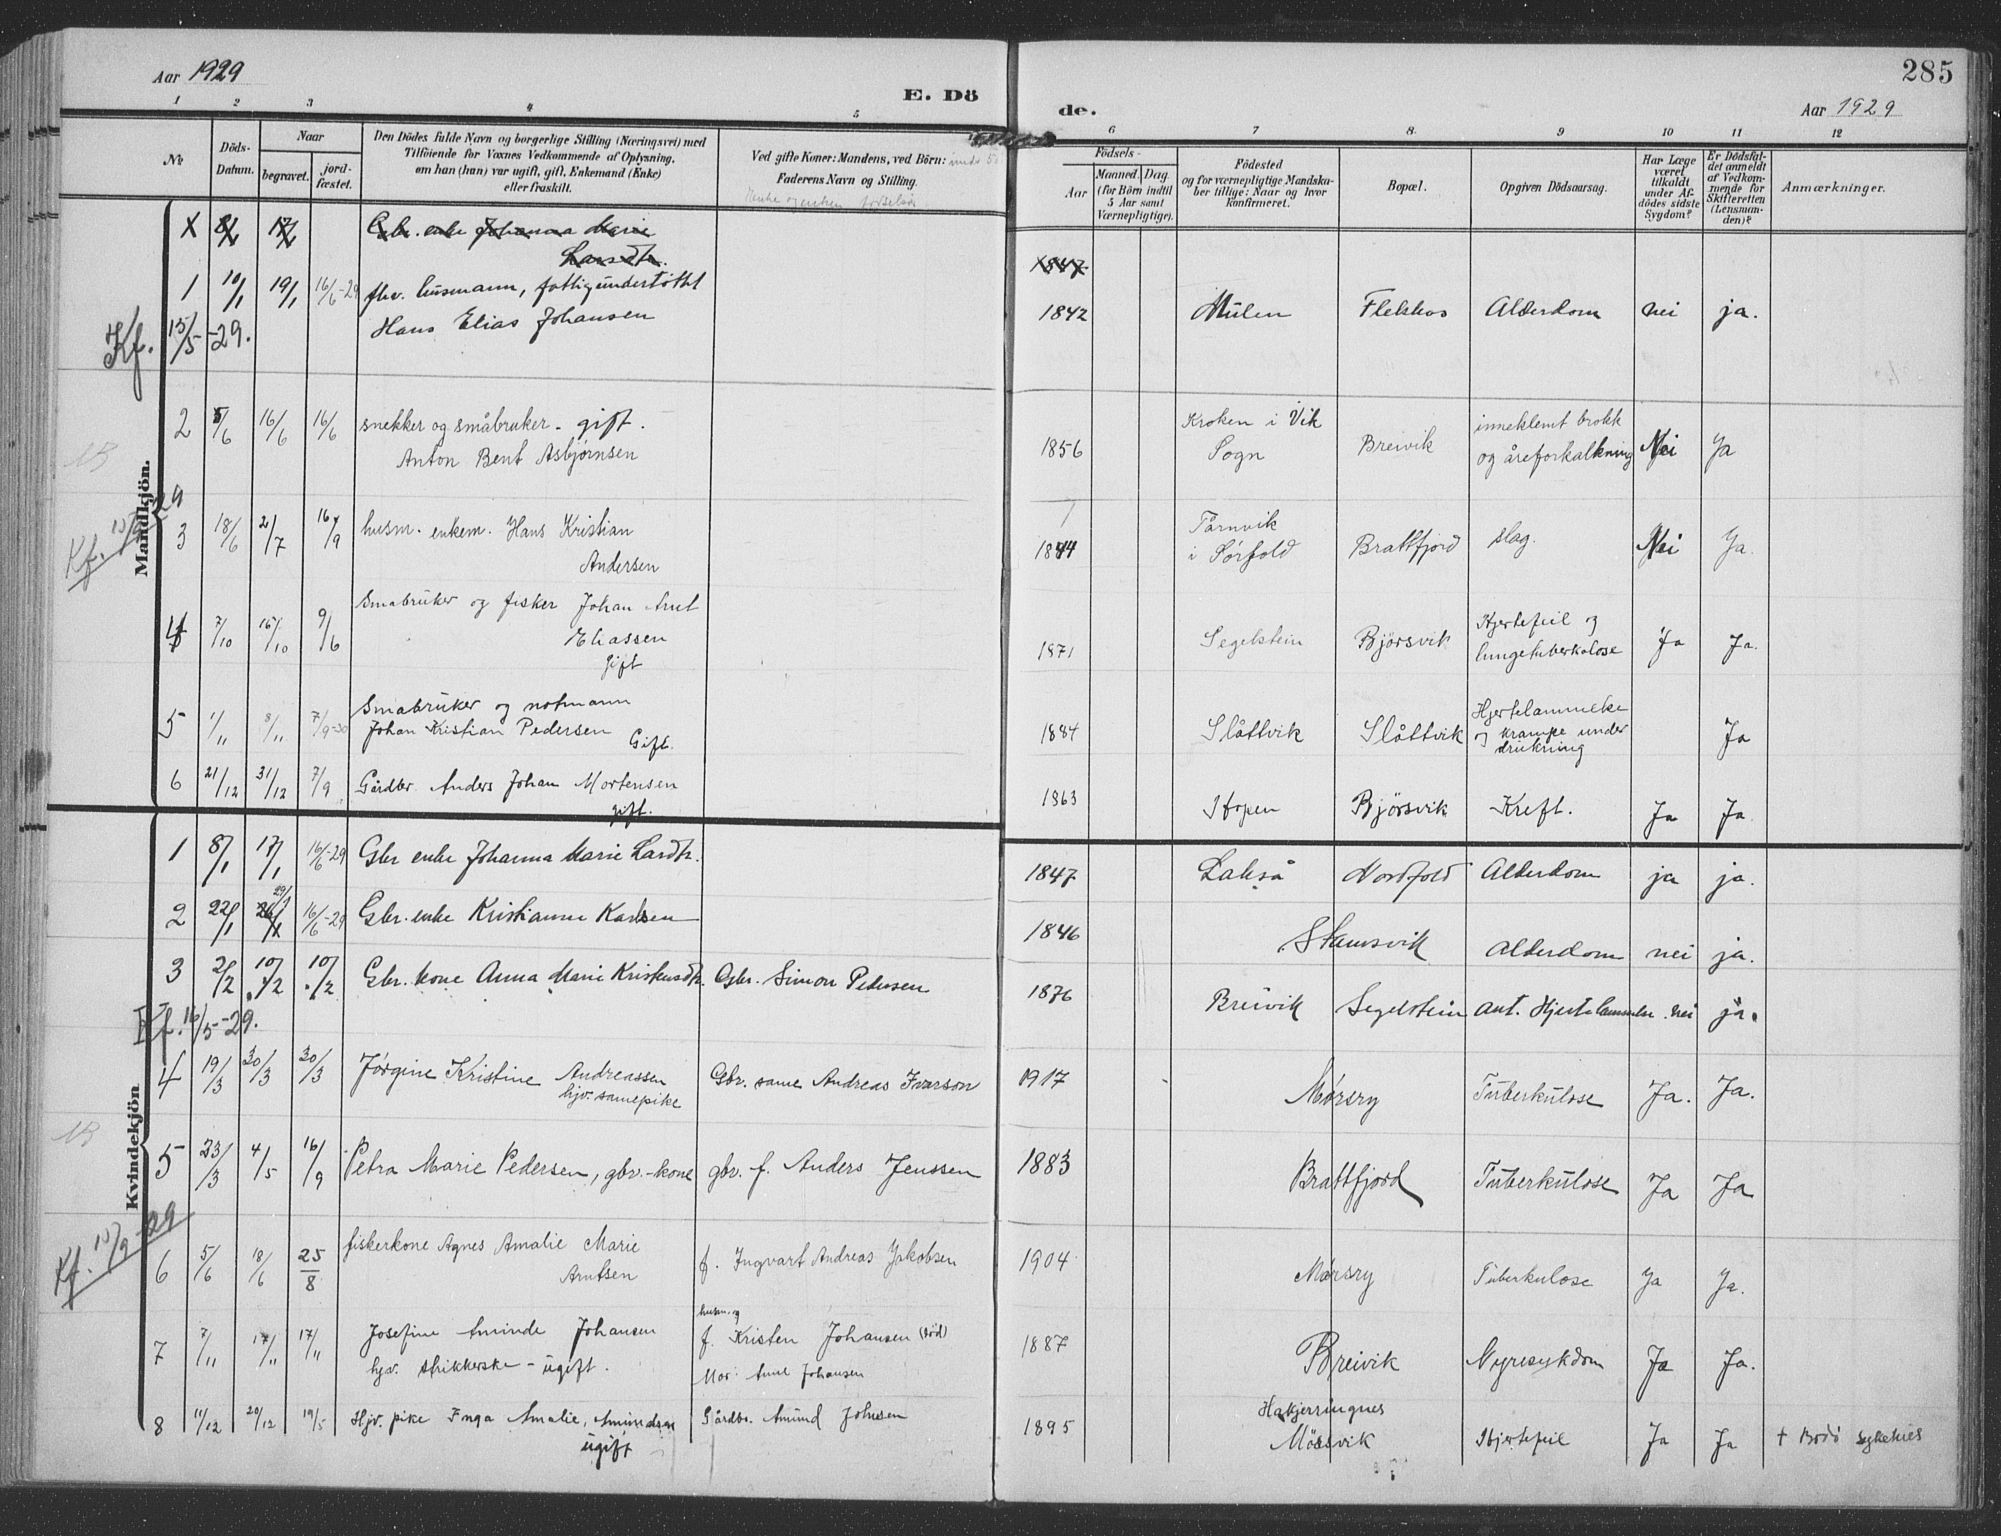 Aar 1929
E. Dö
de.
285
Aar 1929
1 2 3 4 5 6 7 8 9 10 11 12
No
Döds-
Datum.
Naar
begravet.
jord-
fæstet.
Den Dödes fulde Navn og borgerlige Stilling (Næringsvei) med
Tilföiende for Voxnes Vedkommende af Oplysning,
om han (hun) var ugift, gift, Enkemand (Enke)
eller fraskilt.
Ved gifte Koner: Mandens, ved Börn:
Faderens Navn og Stilling.
Födsels-
Aar
Maaned. Dag.
(for Börn indtil
5 Aar samt
Værnepligtige).
Födested
og for værnepligtige Mandska-
ber tillige: Naar og hvor
konfirmeret.
Bopæl.
Opgiven Dödsaarsag.
Har Læge
været
tilkaldt
under Af-
dödes sidste
Sygdom?
Er Dödsfal-
det anmeldt
af Vedkom-
mende for
Skifteretten
(Lensman-
den)?
Anmærkninger.
Mandkjön.
X 8/1 17/1 Gbr. enke Johanna Marie
Larsdtr. 1847
1 10/1 19/1 16/6-29 fhv. husmann, fattigunderstöttet
Hans Elias Johansen 1842 Mulen Flekkos Alderdom nei ja.
Kf. 15/5-29.
2 5/6 16/6 16/6 snekker og småbruker - gift.
Anton Bent Asbjørnsen 1856 Kroken i Vik
Sogn Breivik inneklemt brokk
og åreforkalkning Nei Ja
3 18/6 2/7 16/9 husm. enkem. Hans Kristian
Andersen 1844 Tårnvik
i Sørfold Brattfjord slag. Nei Ja.
Kf. 15/9-29
4 7/10 16/10 9/6 Småbruker og fisker Johan Arnt
Eliassen
Gift 1871 Segelstein Bjørsvik Hjertefeil og
lungetuberkulose Ja Ja.
5 1/11 8/11 7/9-30 Småbruker og notmann
Johan Kristian Pedersen
Gift. 1884 Slåttvik Slåttvik Hjertelammelse
og krampe under
drukning Ja
6 21/12 31/12 7/9 Gårdbr. Anders Johan Mortensen
gift. 1863 Hopen Bjørsvik Kreft. Ja Ja
Kvindekjön
1 8/1 17/1 16/6-29 Gbr enke Johanna Marie Larsdtr. 1847 Lakså Nordfold Alderdom ja ja.
2 22/1 29/1 16/6-29 Gbr. enke Kristianne Karlsen 1846 Stamsvik Alderdom nei ja.
3 2/2 10/2 10/2 Gbr. kone Anna Marie Kristensdtr. Gbr. Simon Pedersen 1876 Breivik Segelstein ant. Hjertelammelse nei ja.
Kf. 16/5-29.
4 19/3 30/3 30/3 Jørgine Kristine Andreassen
hjv. samepike Gbr. same Andreas Ivarson 1917 Mørsry Tuberkulose Ja. Ja.
5 23/3 4/5 16/9 Petra Marie Pedersen, gbr.-kone gbr. f. Anders Jenssen 1883 Brattfjord Tuberkulose Ja Ja
Kf. 15/9-29
6 5/6 18/6 25/8 fiskerkone Agnes Amalie Marie
Arntsen f. Ingvart Andreas Jakobsen 1904 Mørsry Tuberkulose Ja Ja.
7 7/11 17/11 17/11 Josefine Aminde Johansen
hjv. strikkerske - ugift. husm. og
f. Kristen Johansen (död)
Mor: Anne Johansen 1887 Breivik Nyresykdom Ja Ja.
8 11/12 20/12 19/5 Hjv. pike Inga Amalie, Amundsen
ugift Gårdbr. Amund Johnsen 1895 Hakjerringnes
Mørsvik Hjertefeil Ja Ja + Bodö sykehus